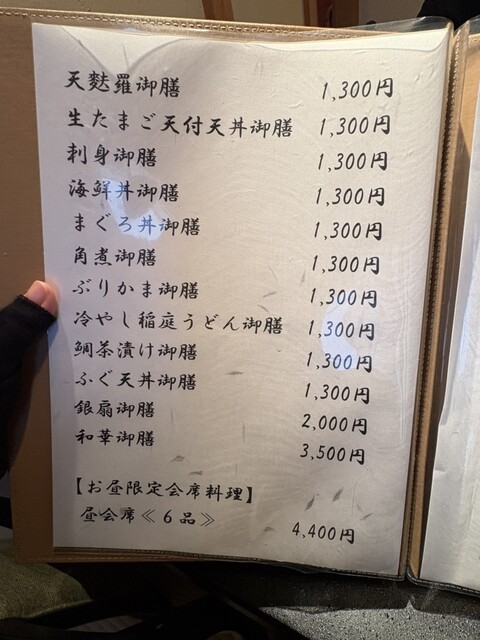 天麩羅御膳 1,300円
生たまご天付天丼御膳 1,300円
刺身御膳 1,300円
海鮮丼御膳 1,300円
まぐろ丼御膳 1,300円
角煮御膳 1,300円
ぶりかま御膳 1,300円
冷やし稲庭うどん御膳 1,300円
鯛茶漬け御膳 1,300円
ふぐ天丼御膳 1,300円
銀扇御膳 2,000円
和華御膳 3,500円
【お昼限定会席料理】
昼会席≪6品≫ 4,400円